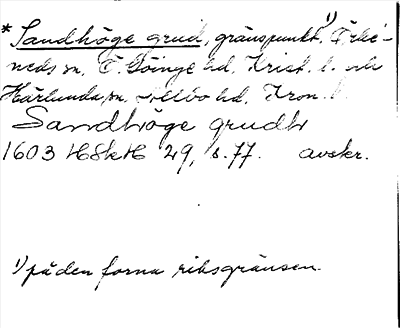 * Sandhöge grud, gränspunkt, 1) Örke-
neds sn, Ö. Göinge hd, Krist. l. och
Härlunda sn, Allbo hd, Kron. l.
Sandhöge grudh
1603 HSkH 29, s. 77. avskr.
1) på den forna riksgränsen.